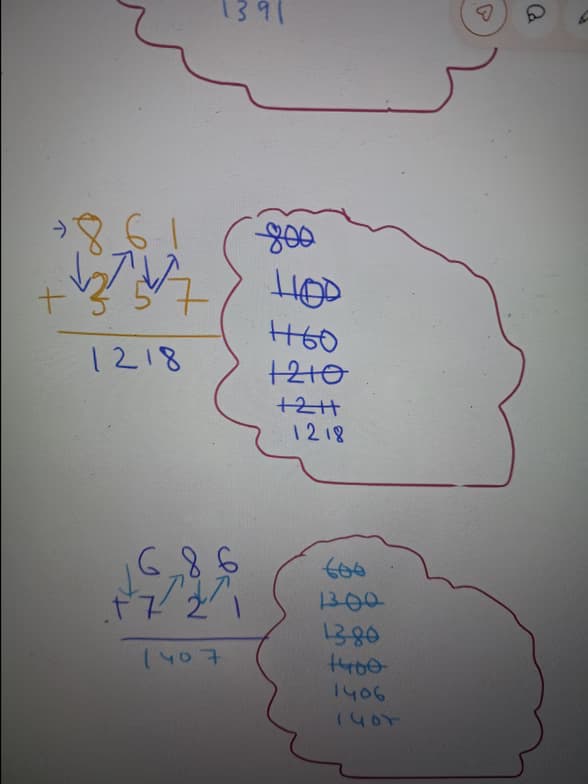 1391
861
+ 357
1218
800
1100
1160
1210
1211
1218
686
+ 721
1407
600
1300
1380
1400
1406
1407